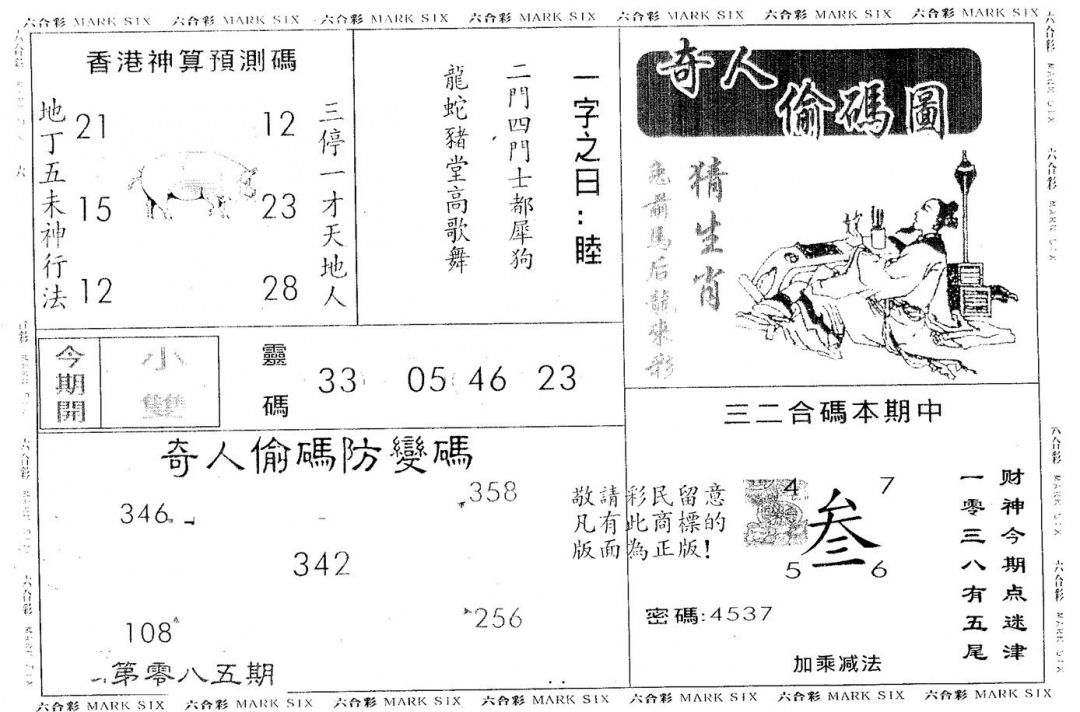 六合彩 MARK SIX 六合彩 MARK SIX 六合彩 MARK SIX 六合彩 MARK SIX 六合彩 MARK SIX 六合彩 MARK SIX 六合彩 MARK SIX
香港神算預測碼
地丁五未神行法
21 12
15 23
12 28
三停一才天地人
一字之曰:睦
二門四門士都犀狗
龍蛇豬堂高歌舞
奇人
偷碼圖
猜生肖
兔前馬后龍來彩
今期開
小
雙
靈碼
33 05 46 23
三二合碼本期中
奇人偷碼防變碼
346 358
342
108 256
第零八五期
敬請彩民留意
凡有此商標的
版面為正版!
4 7
叁
5 6
密碼:4537
加乘减法
财神今期点迷津
一零三八有五尾
六合彩 MARK SIX 六合彩 MARK SIX 六合彩 MARK SIX 六合彩 MARK SIX 六合彩 MARK SIX 六合彩 MARK SIX 六合彩 MARK SIX